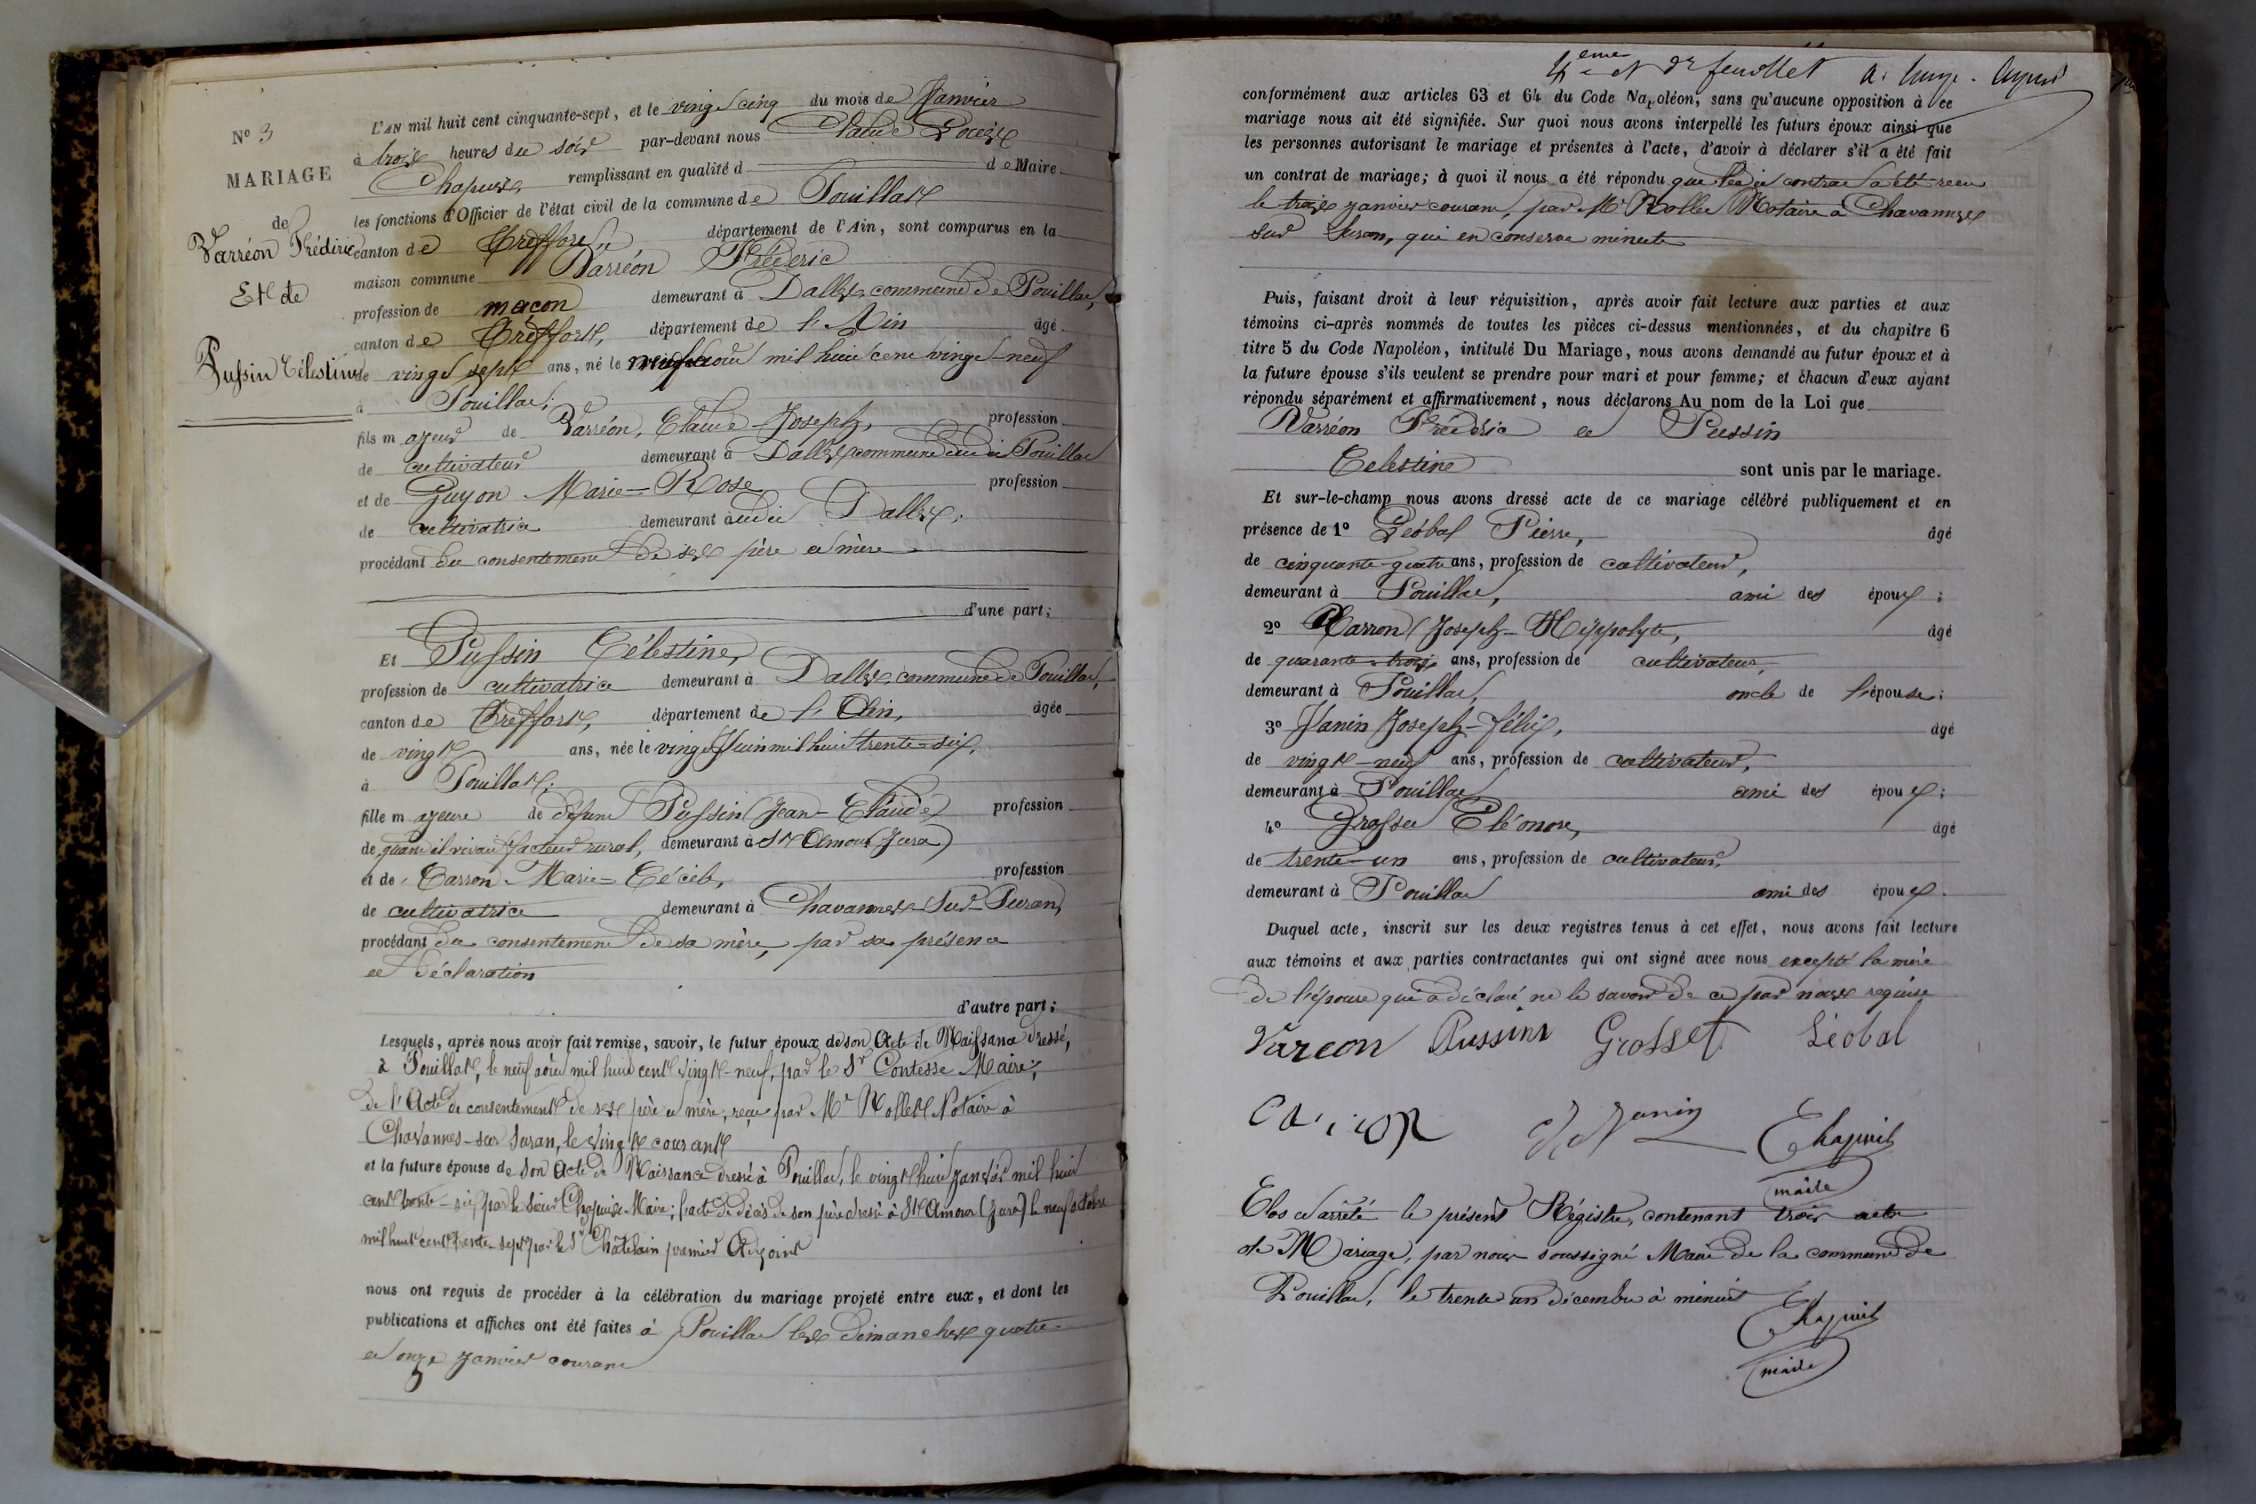 N° 3
MARIAGE
de
Varréon Frédéric
Et de
Pussin Célestine
L'AN mil huit cent cinquante-sept, et le vingt cinq du mois de Janvier
à trois heures du soir par-devant nous Claude Louis
Chapuis remplissant en qualité d de Maire
les fonctions d'Officier de l'état civil de la commune de Pouillat
canton de Treffort, département de l'Ain, sont comparus en la
maison commune Varréon Fréderic
profession de maçon demeurant à Dalles commune de Pouillat,
canton de Treffort, département de l'Ain âgé
de vingt sept ans, né le neuf aout mil huit cent vingt-neuf
à Pouillat;
fils majeur de Varréon, Claude Joseph, profession
de cultivateur demeurant à Dalles commune dudit Pouillat
et de Guyon Marie-Rose profession
de cultivatrice demeurant audit Dalles;
procédant du consentement de ses père et mère
d'une part;
Et Pussin Célestine,
profession de cultivatrice demeurant à Dalles, commune de Pouillat,
canton de Treffort, département de l'Ain, âgée
de vingt ans, née le vingt Juin mil huit trente-six,
à Pouillat;
fille majeure de défunt Pussin Jean-Claude profession
de, quand il vivait facteur rural, demeurant à St Amour (Jura)
et de Carron Marie-Cécile, profession
de cultivatrice demeurant à Chavannes-Sur-Suran,
procédant du consentement de sa mère, par sa présence
et déclaration
d'autre part;
Lesquels, après nous avoir fait remise, savoir, le futur époux de son Acte de Naissance dressé,
à Pouillat, le neuf août mil huit cent vingt-neuf, par le Sr Contesse Maire;
de l'Acte de consentement de ses père et mère, reçu par Mr Rollet Notaire à
Chavannes-sur Suran, le vingt courant
et la future épouse de son Acte de Naissance dressé à Pouillat, le vingt huit janvier mil huit
cent trente-six, par le sieur Chapuis Maire; l'acte de décès de son père dressé à St Amour (Jura) le neuf octobre
mil huit cent trente-sept par le Sr Châtelain premier Adjoint
nous ont requis de procéder à la célébration du mariage projeté entre eux, et dont les
publications et affiches ont été faites à Pouillat les dimanches quatre
et onze Janvier courant
4eme et dr feuillet
conformément aux articles 63 et 64 du Code Napoléon, sans qu'aucune opposition à ce
mariage nous ait été signifiée. Sur quoi nous avons interpellé les futurs époux ainsi que
les personnes autorisant le mariage et présentes à l'acte, d'avoir à déclarer s'il a été fait
un contrat de mariage; à quoi il nous a été répondu que ledit contrat a été reçu
le treize janvier courant, par Mr Rollet Notaire à Chavannes
sur Suran, qui en conserve minute
Puis, faisant droit à leur réquisition, après avoir fait lecture aux parties et aux
témoins ci-après nommés de toutes les pièces ci-dessus mentionnées, et du chapitre 6
titre 5 du Code Napoléon, intitulé Du Mariage, nous avons demandé au futur époux et à
la future épouse s'ils veulent se prendre pour mari et pour femme; et chacun d'eux ayant
répondu séparément et affirmativement, nous déclarons Au nom de la Loi que
Varréon Fréderic et Pussin
Celestine sont unis par le mariage.
Et sur-le-champ nous avons dressé acte de ce mariage célébré publiquement et en
présence de 1° Léobal Pierre, âgé
de cinquante-quatre ans, profession de cultivateur,
demeurant à Pouillat, ami des époux;
2° Carron Joseph-Hippolyte, âgé
de quarante-trois ans, profession de cultivateur,
demeurant à Pouillat, oncle de l'épouse;
3° Janin Joseph-félix, âgé
de vingt-neuf ans, profession de cultivateur,
demeurant à Pouillat ami des époux;
4° Grosset Eléonore, âgé
de trente-un ans, profession de cultivateur,
demeurant à Pouillat ami des époux.
Duquel acte, inscrit sur les deux registres tenus à cet effet, nous avons fait lecture
aux témoins et aux parties contractantes qui ont signé avec nous excepté la mère
de l'épouse qui a déclaré ne le savoir de ce par nous requise
Varéon Pussin Grosset Léobal
Carron Janin Chapuis
maire
Clos et arrêté le présent Régistre, contenant trois acte
de Mariage, par nous soussigné Maire de la commune de
Pouillat, le trente un décembre à minuit
Chapuis
maire